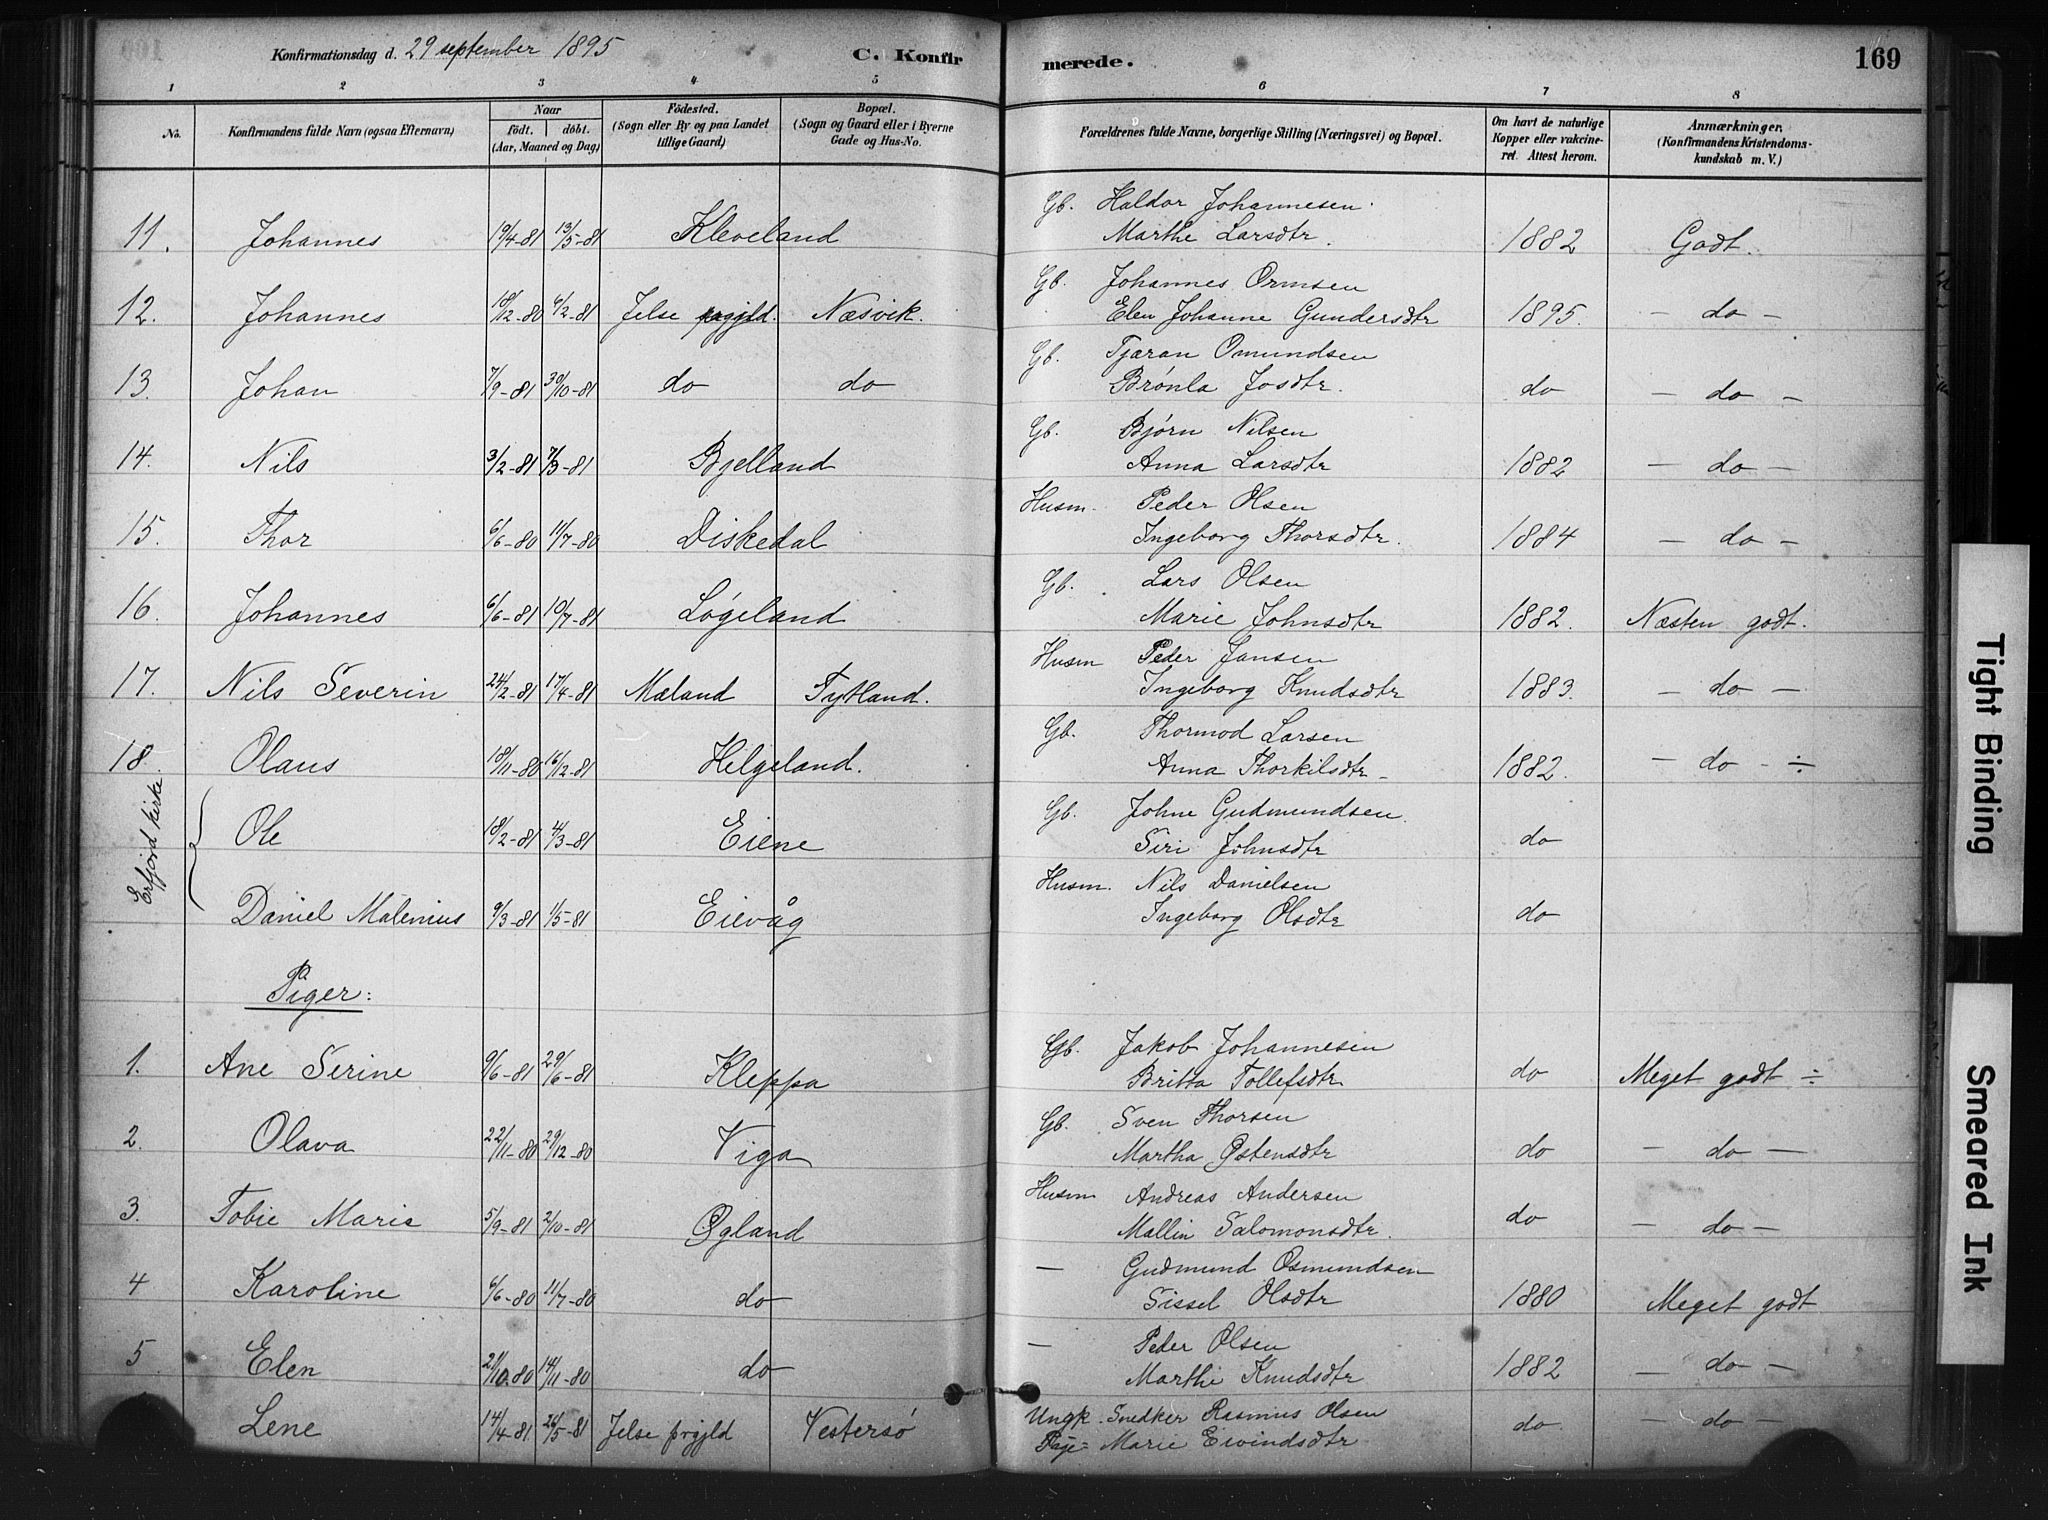 Konfirmationsdag d. 29 september 1895 C. Konfirmerede. 169
1 2 3 4 5 6 7 8
No. Konfirmandens fulde Navn (ogsaa Efternavn) Naar født. døbt. (Aar, Maaned og Dag) Fødested. (Sogn eller By og paa Landet tillige Gaard) Bopæl. (Sogn og Gaard eller i Byerne Gade og Hus-No. Forældrenes fulde Navne, borgerlige Stilling (Næringsvei) og Bopæl. Om havt de naturlige Kopper eller vakcineret. Attest herom. Anmærkninger, (Konfirmandens Kristendomskundskab m. V.)
Gb. Haldor Johannesen.
11. Johannes 19/4-81 13/5-81 Kleveland Marthe Larsdtr. 1882 Godt.
Gb. Johannes Ormsen
12. Johannes 18/12-80 6/2-81 Jelse prgjld. Næsvik. Elen Johanne Gundersdtr 1895. - do -
Gb. Tjæran Omundsen
13. Johan 7/9-81 30/10-81 do do Brønla Josdtr. do - do -
Gb. Bjørn Nilsen
14. Nils 3/2-81 7/3-81 Bjelland Anna Larsdtr 1882 - do -
Husm. Peder Olsen
15. Thor 6/6-80 11/7-80 Diskedal Ingeborg Thorsdtr. 1884 - do -
Gb. Lars Olsen
16. Johannes 6/6-81 10/7-81 Løgeland Marie Johnsdtr 1882. Næsten godt.
Husm Peder Jansen
17. Nils Severin 24/2-81 17/4-81 Mæland Tytland. Ingeborg Knudsdtr 1883. - do -
Gb. Thormod Larsen
18. Olaus 18/11-80 16/12-81 Helgeland. Anna Thorkilsdtr - 1882. - do - ÷
Erfjord kirke.
Gb. Johne Gudmundsen.
Ole 18/2-81 4/3-81 Eiene Siri Johnsdtr do
Husm. Nils Danielsen
Daniel Malenius 9/3-81 1/5-81 Eievåg Ingeborg Olsdtr do
Piger:
Gb. Jakob Johannesen
1. Ane Serine 9/6-81 29/6-81 Kleppa Britta Tollefsdtr do Meget godt ÷
Gb. Sven Thorsen
2. Olava 22/11-80 29/12-80 Viga Martha Østensdtr do - do -
Husm Andreas Andersen
3. Tobie Marie 5/9-81 2/10-81 Øgland Mallin Salomonsdtr. do - do -
- Gudmund Osmundsen
4 Karoline 6/6-80 11/7-80 do Sissel Olsdtr 1880 Meget godt
- Peder Olsen
5 Elen 21/10-80 14/11-80 do Marthe Knudsdtr 1882 - do -
Ungk. Snedker Rasmus Olsen
Lene 14/4-81. 26/5-81 Jelse prgjld Vestersø Pige Marie Eivindsdtr do - do -
Tight Binding
Smeared Ink